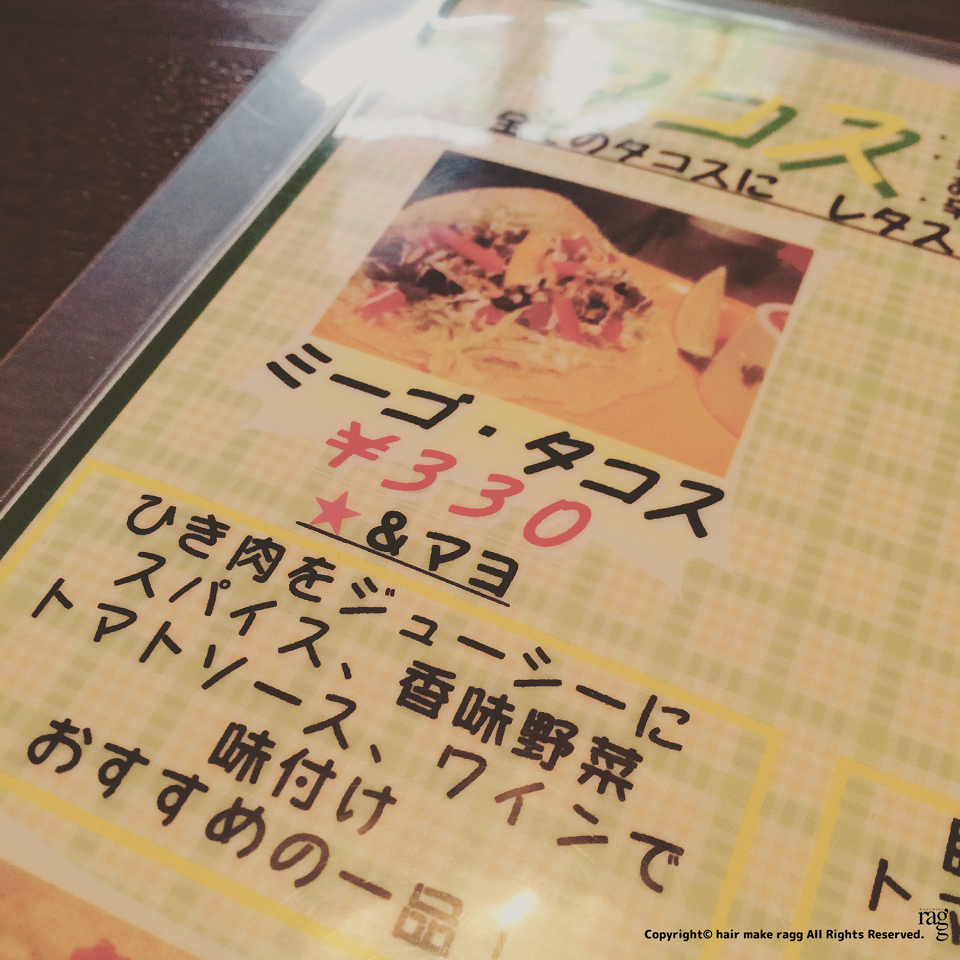 タコス
全てのタコスに レタス
ミーゴ・タコス
¥330
★&マヨ
ひき肉をジューシーに
スパイス、香味野菜
トマトソース、ワインで
味付け
おすすめの一品
ト
ragg
Copyright© hair make ragg All Rights Reserved.